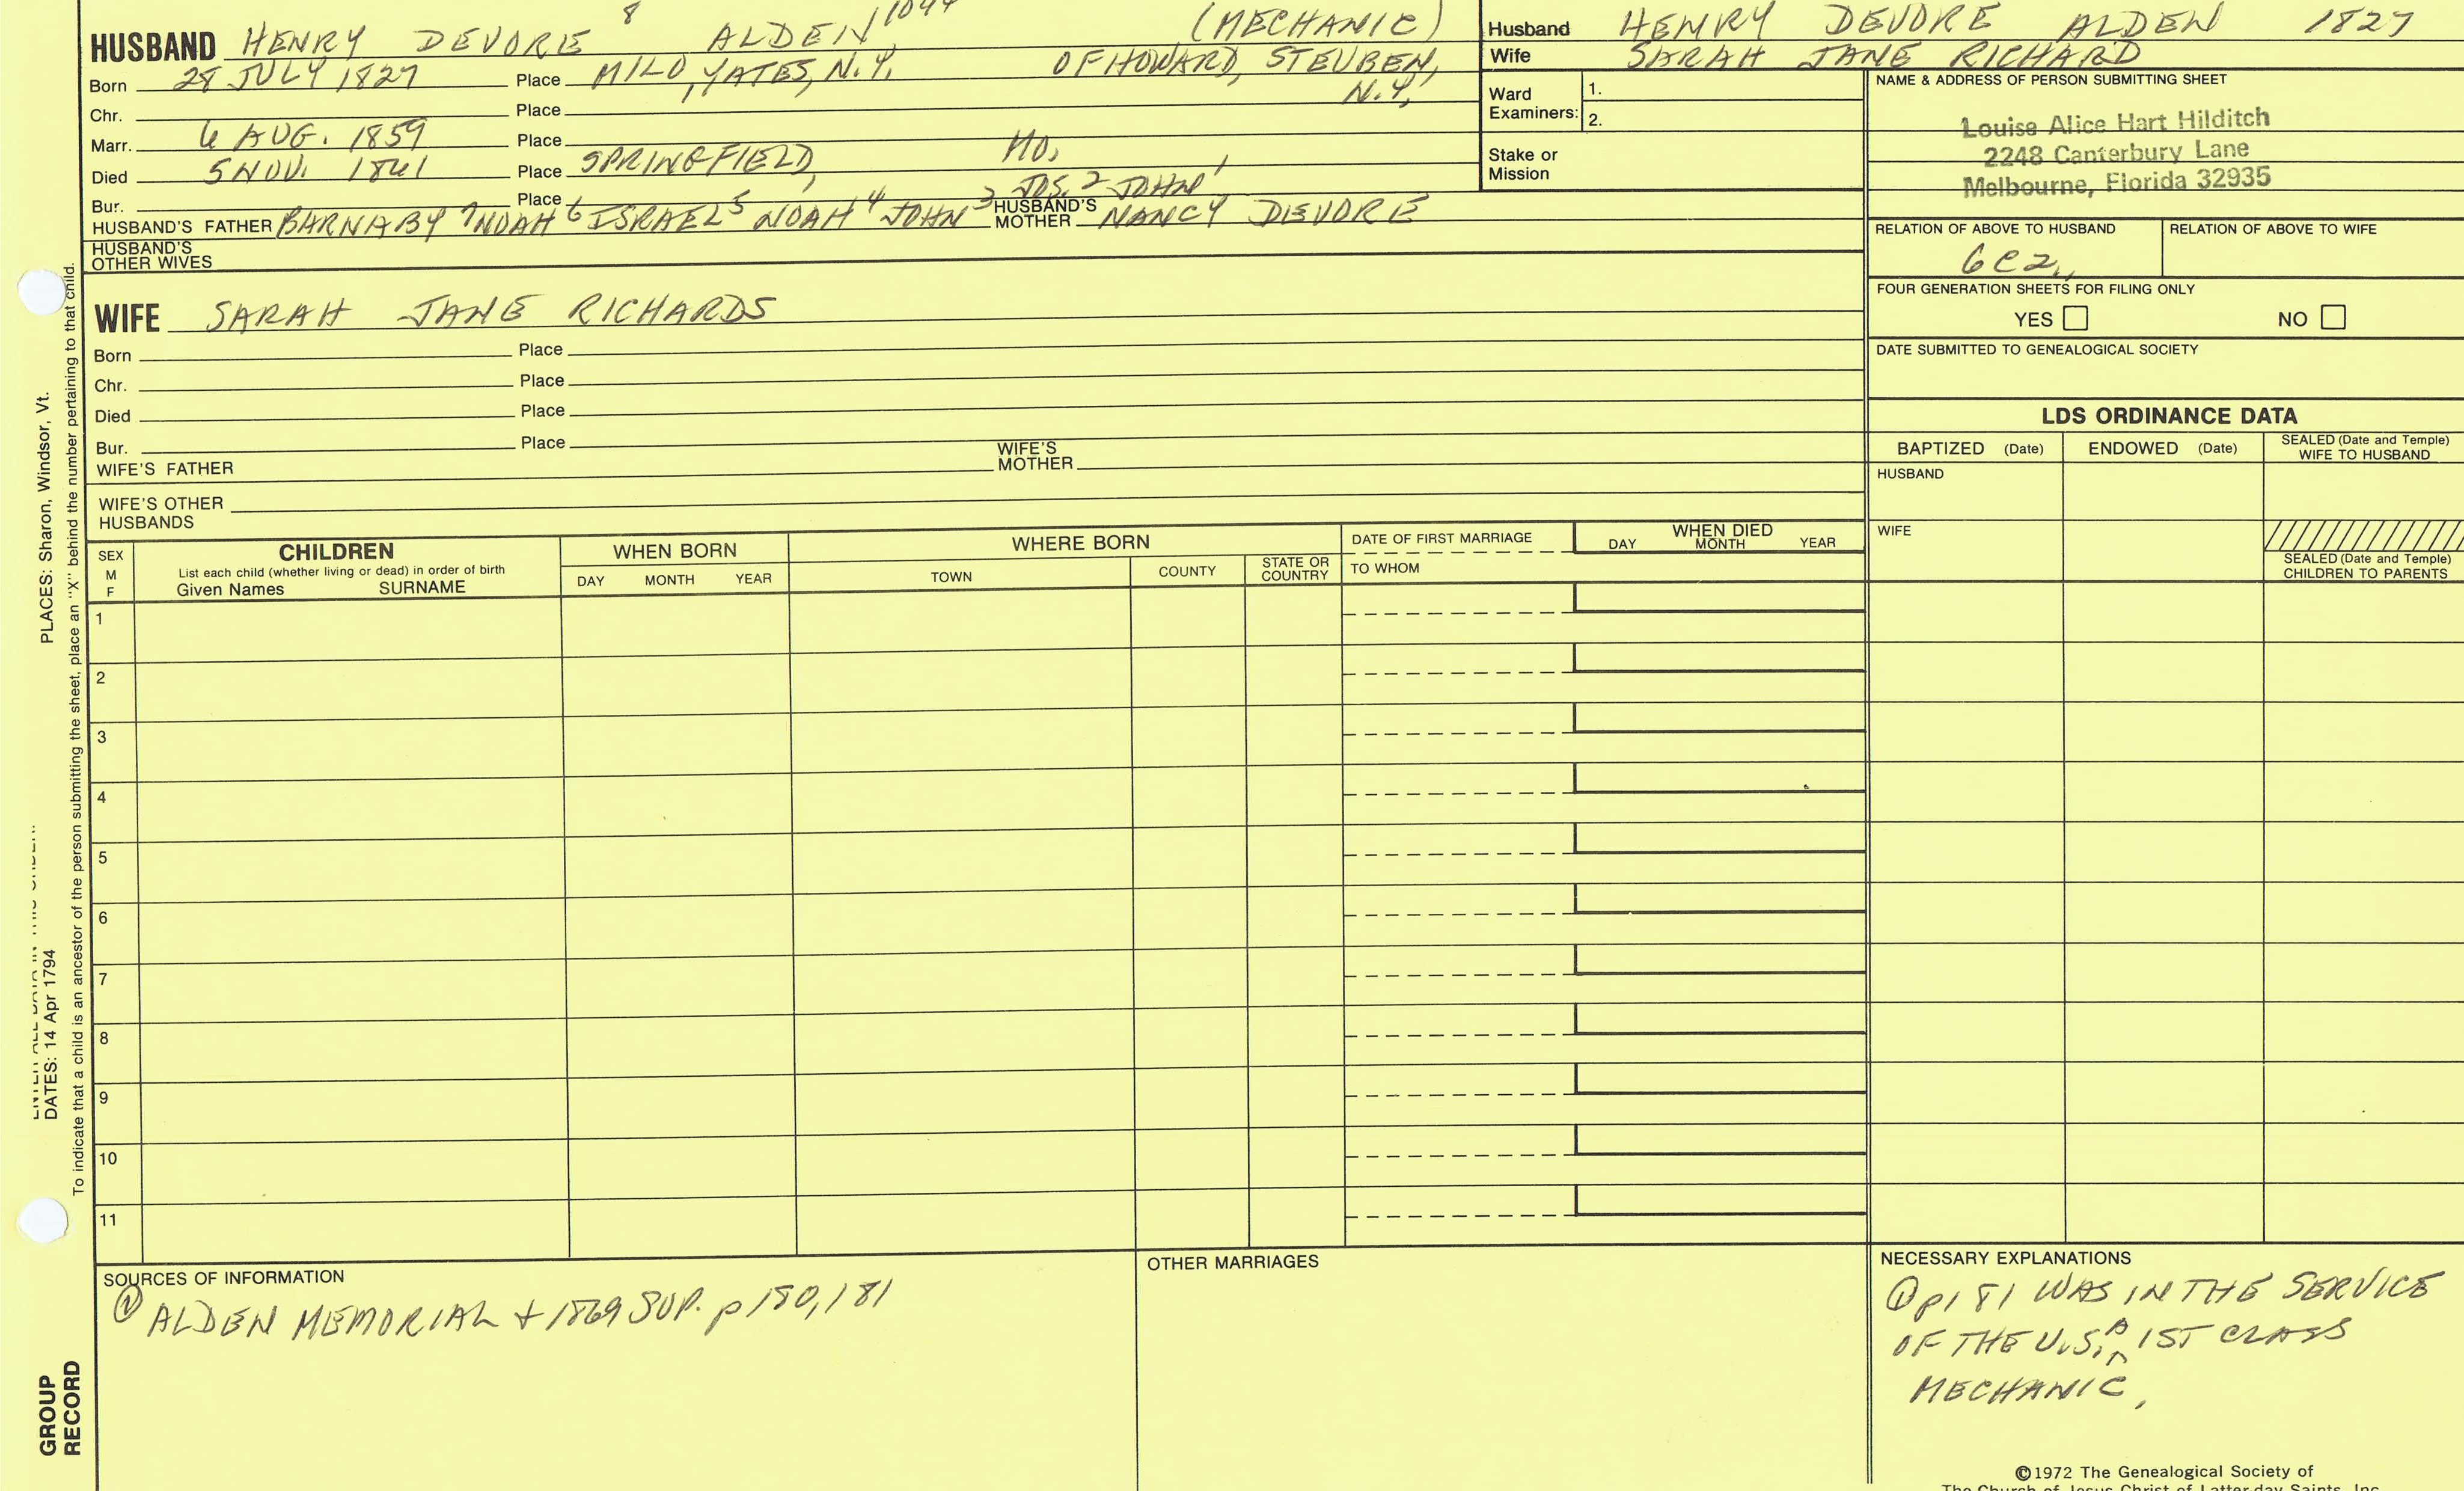 HUSBAND HENRY DEVORE 8 ALDEN 1044 (MECHANIC)
Born 28 JULY 1827 Place MILO, YATES, N.Y. OF HOWARD, STEUBEN, N.Y,
Chr. Place
Marr. 6 AUG. 1859 Place
Died 5 NOV. 1861 Place SPRINGFIELD, MO,
Bur. Place
HUSBAND'S FATHER BARNABY 7 NOAH 6 ISRAEL 5 NOAH 4 JOHN 3 JOS. 2 JOHN 1 HUSBAND'S MOTHER NANCY DEVORE
HUSBAND'S OTHER WIVES
WIFE SARAH JANE RICHARDS
Born Place
Chr. Place
Died Place
Bur. Place
WIFE'S FATHER WIFE'S MOTHER
WIFE'S OTHER HUSBANDS
Husband HENRY DEVORE ALDEN 1827
Wife SARAH JANE RICHARD
Ward Examiners: 1. 2.
Stake or Mission
NAME & ADDRESS OF PERSON SUBMITTING SHEET
Louise Alice Hart Hilditch
2248 Canterbury Lane
Melbourne, Florida 32935
RELATION OF ABOVE TO HUSBAND RELATION OF ABOVE TO WIFE
6C2
FOUR GENERATION SHEETS FOR FILING ONLY
YES NO
DATE SUBMITTED TO GENEALOGICAL SOCIETY
LDS ORDINANCE DATA
BAPTIZED (Date) ENDOWED (Date) SEALED (Date and Temple) WIFE TO HUSBAND
HUSBAND
WIFE
SEALED (Date and Temple) CHILDREN TO PARENTS
SEX M F
CHILDREN
List each child (whether living or dead) in order of birth
Given Names SURNAME
WHEN BORN
DAY MONTH YEAR
WHERE BORN
TOWN COUNTY STATE OR COUNTRY
DATE OF FIRST MARRIAGE
TO WHOM
WHEN DIED
DAY MONTH YEAR
1
2
3
4
5
6
7
8
9
10
11
SOURCES OF INFORMATION
① ALDEN MEMORIAL + 1869 SUP. p 180, 181
OTHER MARRIAGES
NECESSARY EXPLANATIONS
① p181 WAS IN THE SERVICE
OF THE U.S, A 1ST CLASS
MECHANIC,
©1972 The Genealogical Society of
The Church of Jesus Christ of Latter-day Saints, Inc.
PLACES: Sharon, Windsor, Vt.
DATES: 14 Apr 1794
To indicate that a child is an ancestor of the person submitting the sheet, place an "X" behind the number pertaining to that child.
GROUP
RECORD